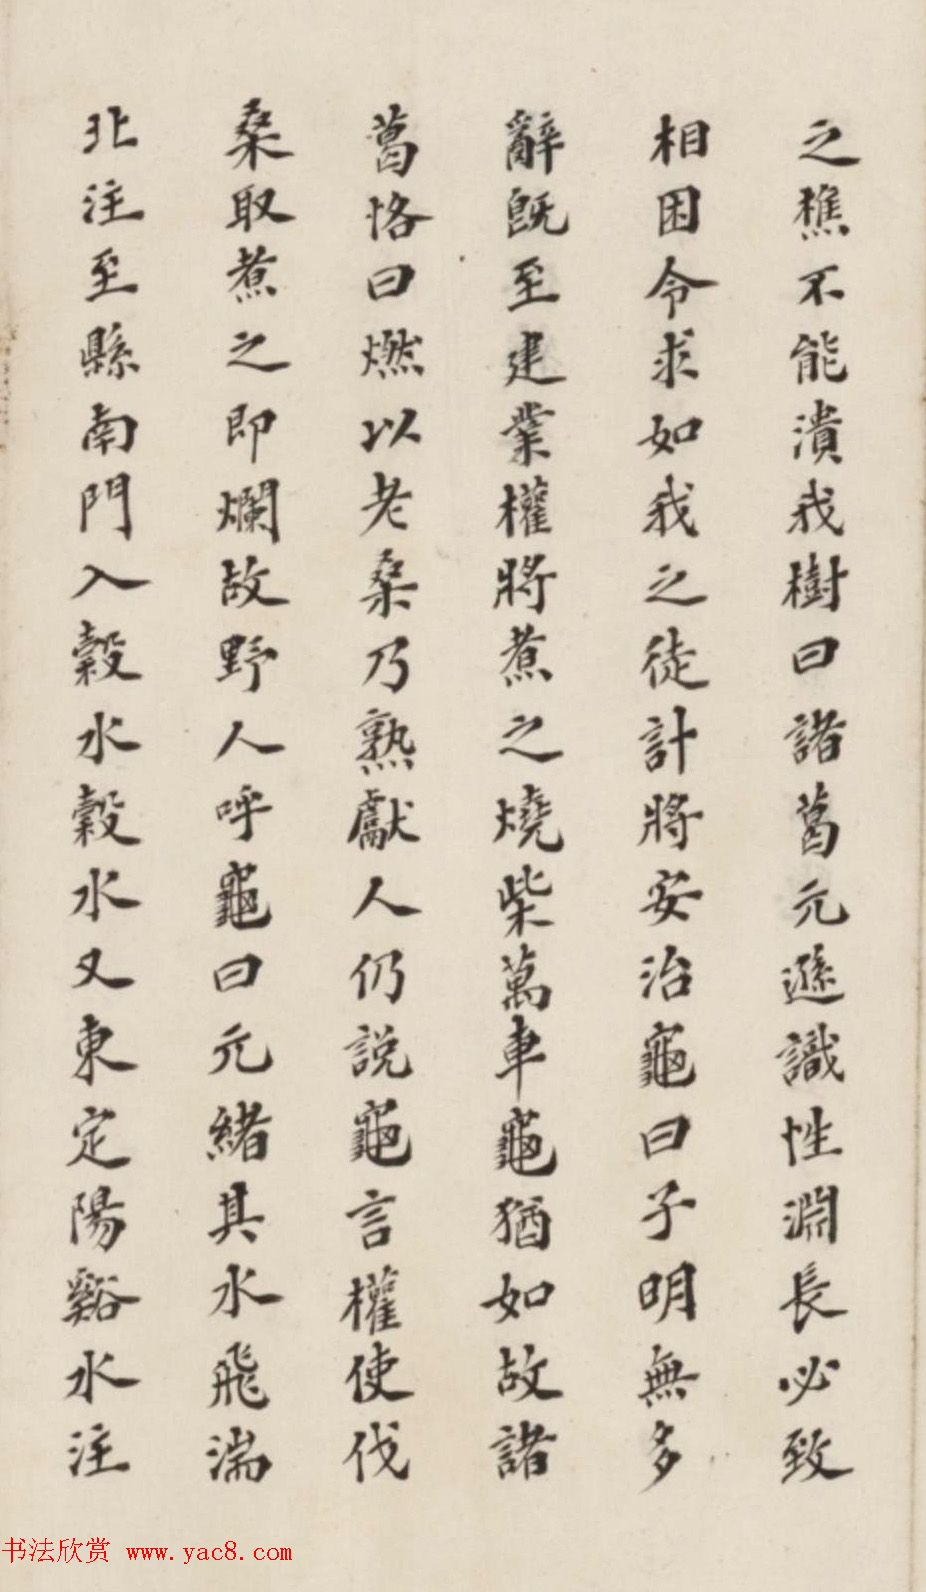 之樵不能潰我樹曰諸葛元遜識性淵長必致
相困令求如我之徒計將安治龜曰子明無多
辭既至建業權將煮之燒柴萬車龜猶如故諸
葛恪曰燃以老桑乃熟獻人仍説龜言權使伐
桑取煮之即爛故野人呼龜曰元緒其水飛湍
北注至縣南門入穀水穀水又東定陽谿水注
书法欣赏 www.yac8.com